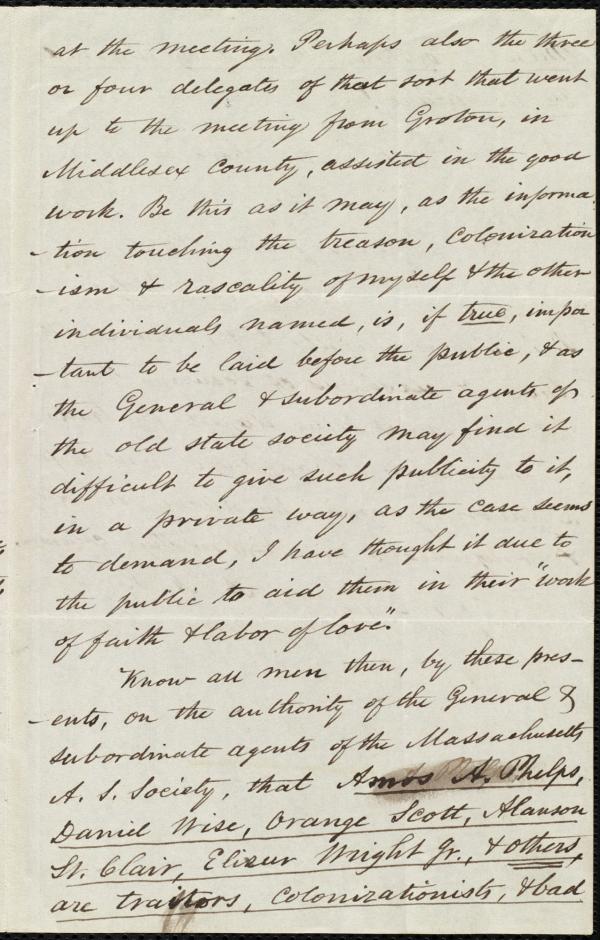 at the meeting. Perhaps also the three
or four delegates of that sort that went
up to the meeting from Groton, in
Middlesex County, assisted in the good
work. Be this as it may, as the informa
-tion touching the treason, Colonization
-ism & rascality of myself & the other
individuals named, is, if true, impor
-tant to be laid before the public, & as
the General & subordinate agents of
the old state society may find it
difficult to give such publicity to it,
in a private way, as the case seems
to demand, I have thought it due to
the public to aid them in their "work
of faith & labor of love".
Know all men then, by these pres-
-ents, on the authority of the General &
subordinate agents of the Massachusetts
A. S. Society, that Amos A. Phelps,
Daniel Wise, Orange Scott, Alanson
St. Clair, Elizur Wright Jr., & others,
are traitors, Colonizationists, & bad